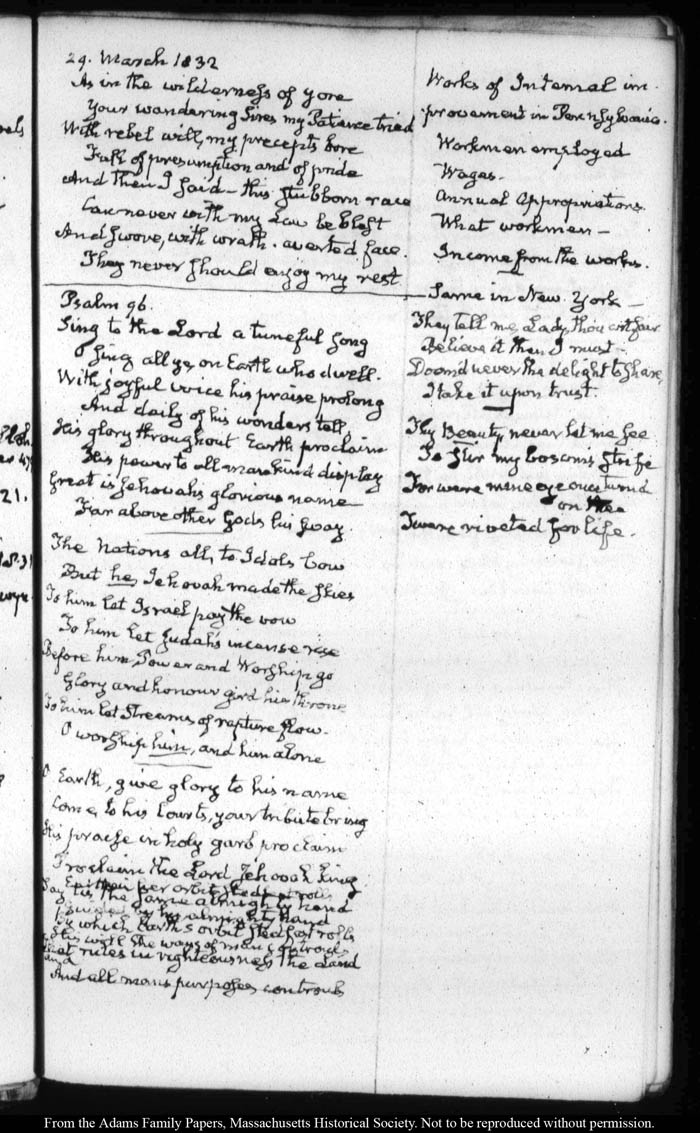 29. March 1832
As in the wilderness of yore
Your wandering Sires my Patience tried
With rebel will, my precepts bore
Full of presumption and of pride
And then I said – this stubborn race
Can never with my Law be blest
And swore, with wrath-averted face.
They never should enjoy my rest.
Psalm 96.
Sing to the Lord a tuneful song
O sing all ye, on Earth who dwell.
With joyful voice his praise prolong
And daily of his wonders tell
His glory throughout Earth proclaim
His power to all mankind display
Great is Jehovah's glorious name
Far above other Gods his sway.
The Nations all, to Idols bow
But he, Jehovah made the skies
To him let Israel pay the vow
To him let Judah's incense rise
Before him Power and Worship go
Glory and honour gird his throne
To him let streams of rapture flow.
O worship him, and him alone
O Earth, give glory to his name
Come, to his Courts, your tribute bring
His praise in holy garb proclaim
Proclaim the Lord Jehovah King
Say tis the same almighty hand
by his almighty hand
by which Earth's orbit stedfast rolls
the ways of man controls
that rules in righteousness the Land
And all mans purposes controuls
Works of Internal im-
provement in Pennsylvania.
Workmen employed
Wages.
Annual Appropriations.
What workmen –
Income from the works.
Same in New York –
They tell me, Lady, thou art fair
Believe it then I must –
Doom'd never the delight to share,
I take it upon trust.
Thy Beauty, never let me see
To stir my bosom's strife
For were mine eye once turn'd
on thee
Twere riveted for life.
From the Adams Family Papers, Massachusetts Historical Society. Not to be reproduced without permission.